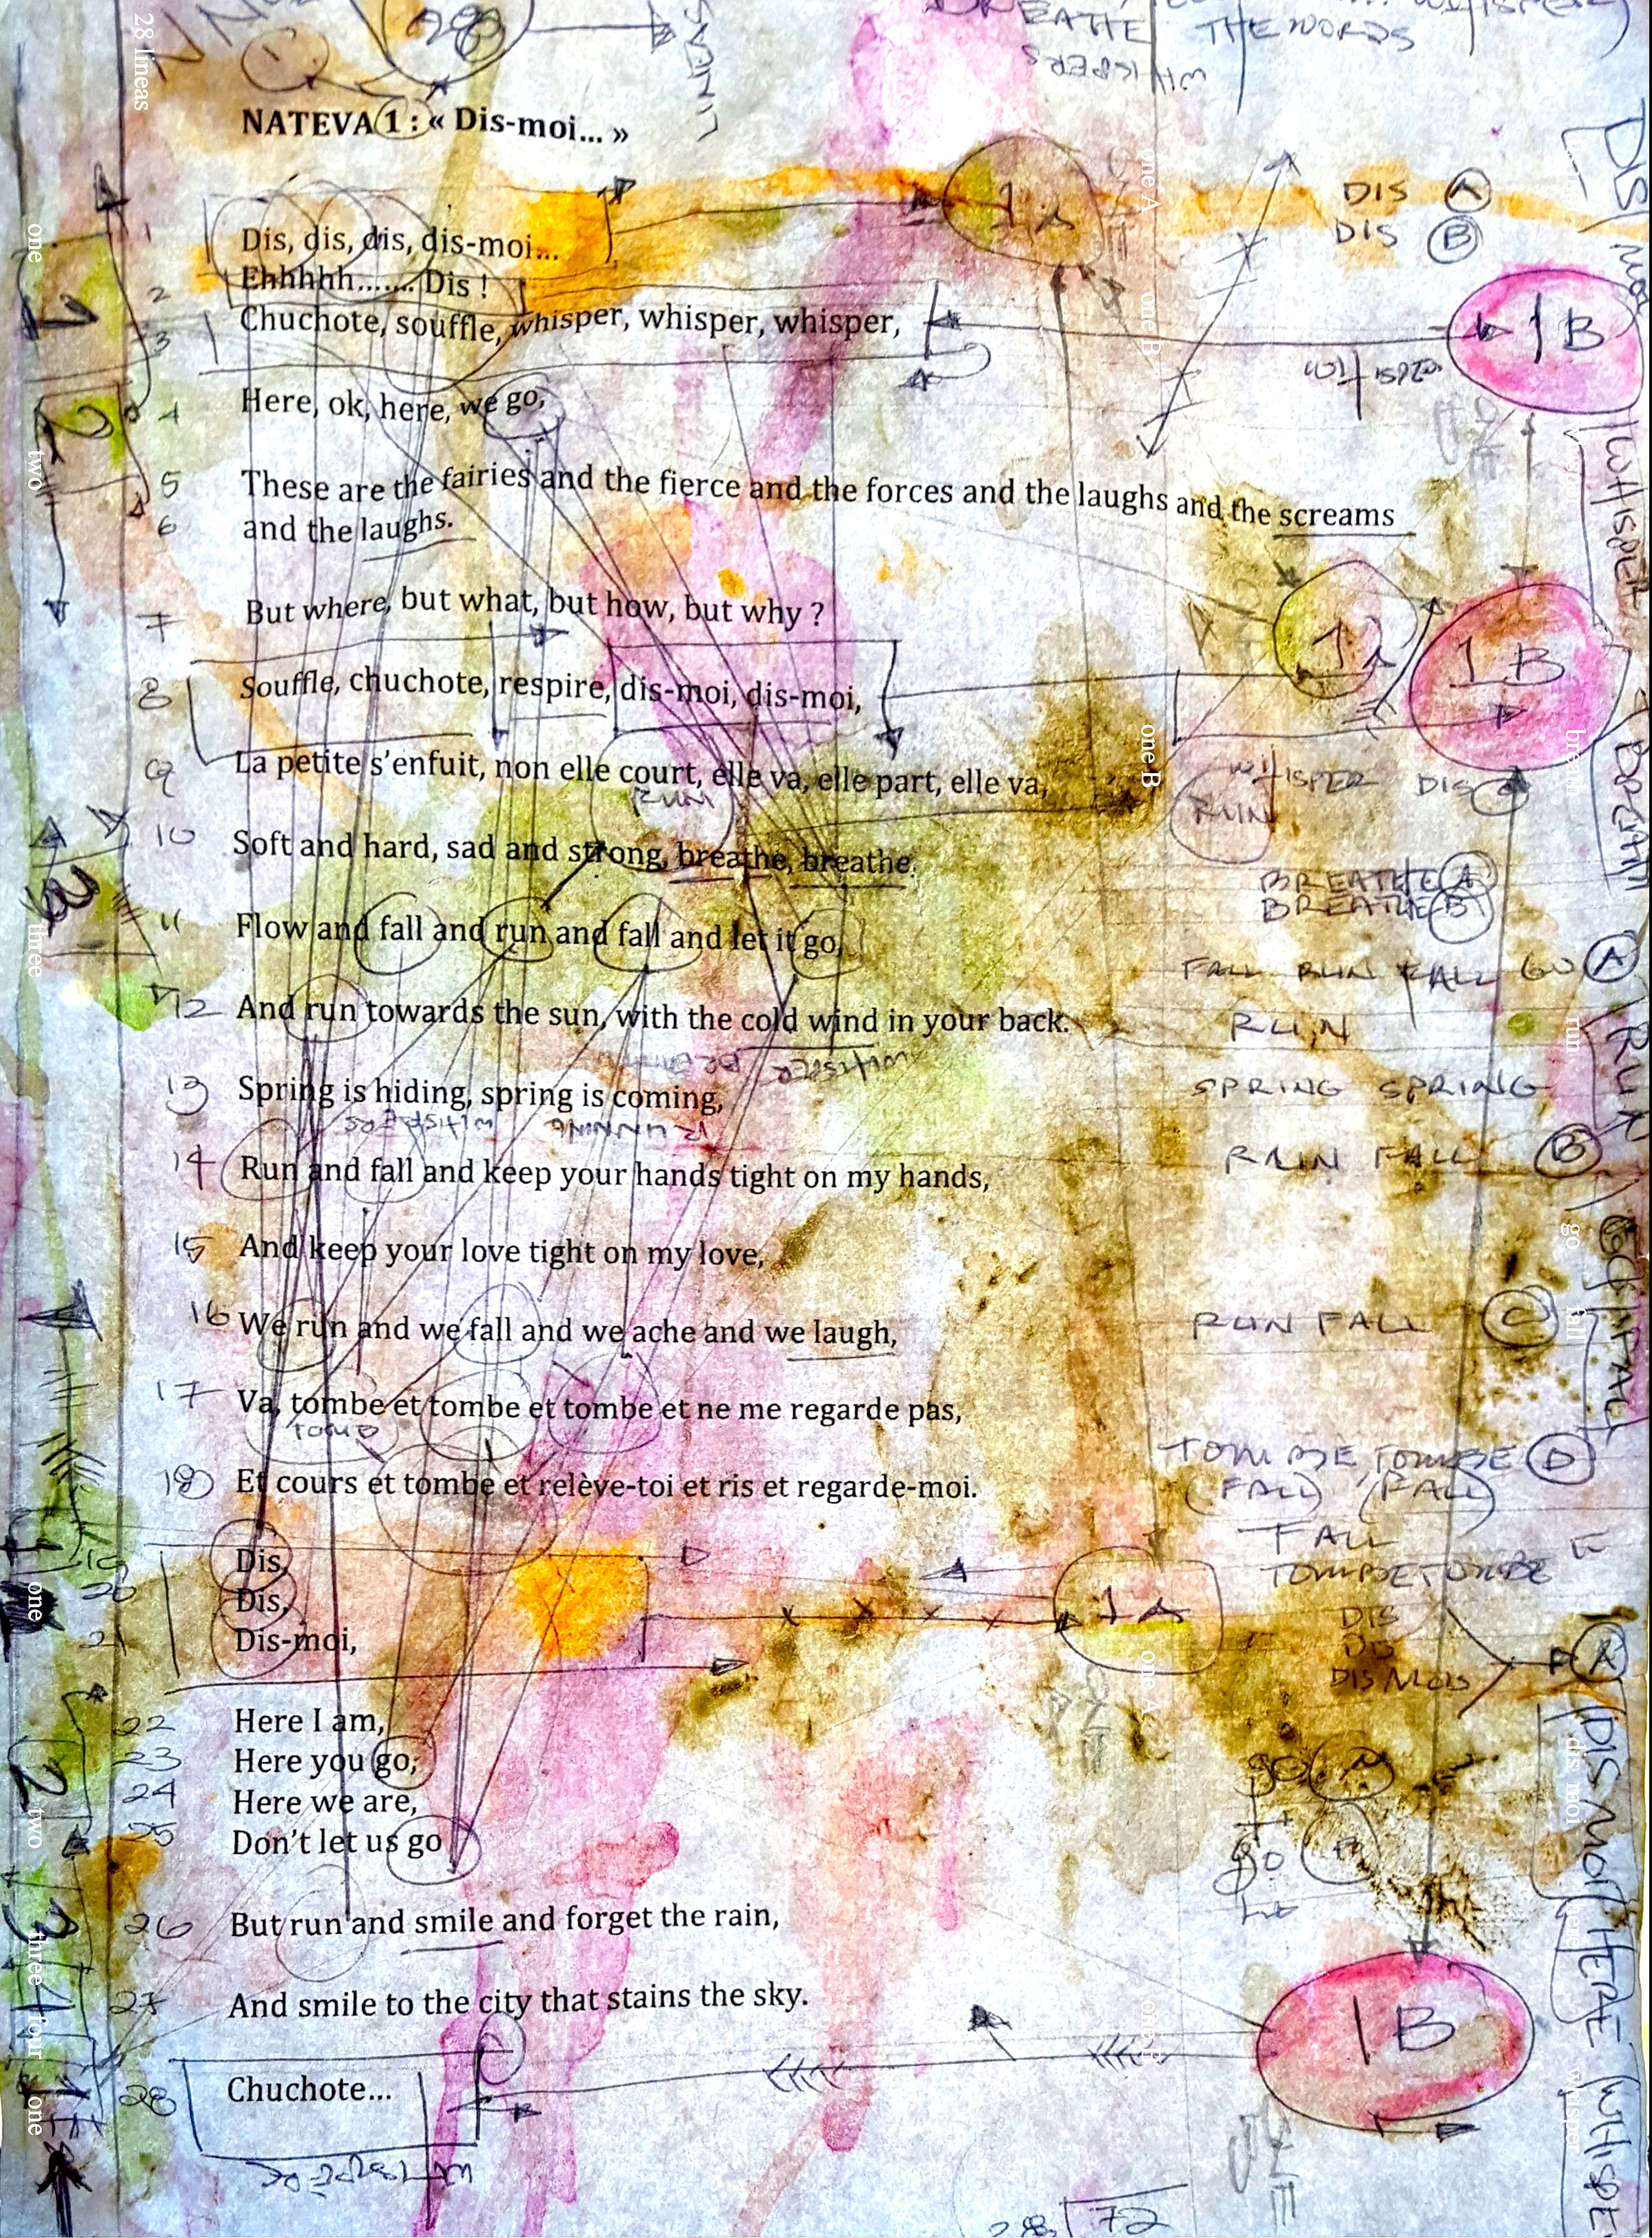 28
EATHE THE WORDS
WHISPERS
28 lineas
NATEVA 1 : « Dis-moi... »
1 A
one A
DIS A
DIS B
1 Dis, dis, dis, dis-moi...
one
1
2 Ehhhhh....... Dis !
3 Chuchote, souffle, whisper, whisper, whisper,
one B
1 B
WHISPER
2
4 Here, ok, here, we go,
two
5 These are the fairies and the fierce and the forces and the laughs and the screams
6 and the laughs.
WHISPER
7 But where, but what, but how, but why ?
1 A
1 B
8 Souffle, chuchote, respire, dis-moi, dis-moi,
one B
9 La petite s'enfuit, non elle court, elle va, elle part, elle va,
RUN
WHISPER DIS
RUN
10 Soft and hard, sad and strong, breathe, breathe.
BREATHE A
BREATHE B
3
three
11 Flow and fall and run and fall and let it go,
FALL RUN FALL GO A
12 And run towards the sun, with the cold wind in your back.
RUN
run
RUN
WHISPER
13 Spring is hiding, spring is coming,
SPRING SPRING
WHISPERS RUNNING
14 Run and fall and keep your hands tight on my hands,
B
15 And keep your love tight on my love,
go fall
16 We run and we fall and we ache and we laugh,
RUN FALL C
17 Va, tombe et tombe et tombe et ne me regarde pas,
TOMBE TOMBE D
(FALL) (FALL)
18 Et cours et tombe et relève-toi et ris et regarde-moi.
FALL
TOMBE TOMBE
19 Dis,
20 Dis,
21 Dis-moi,
one
1 A
one A
DIS
DIS
DIS MOIS
A
22 Here I am,
23 Here you go,
24 Here we are,
25 Don't let us go
2
two
go A
go
DIS MOI HERE WHISPE
dis moi here whisper
26 But run and smile and forget the rain,
3
three
27 And smile to the city that stains the sky.
4
four
1 B
28 Chuchote...
one
WHISPER
28 72